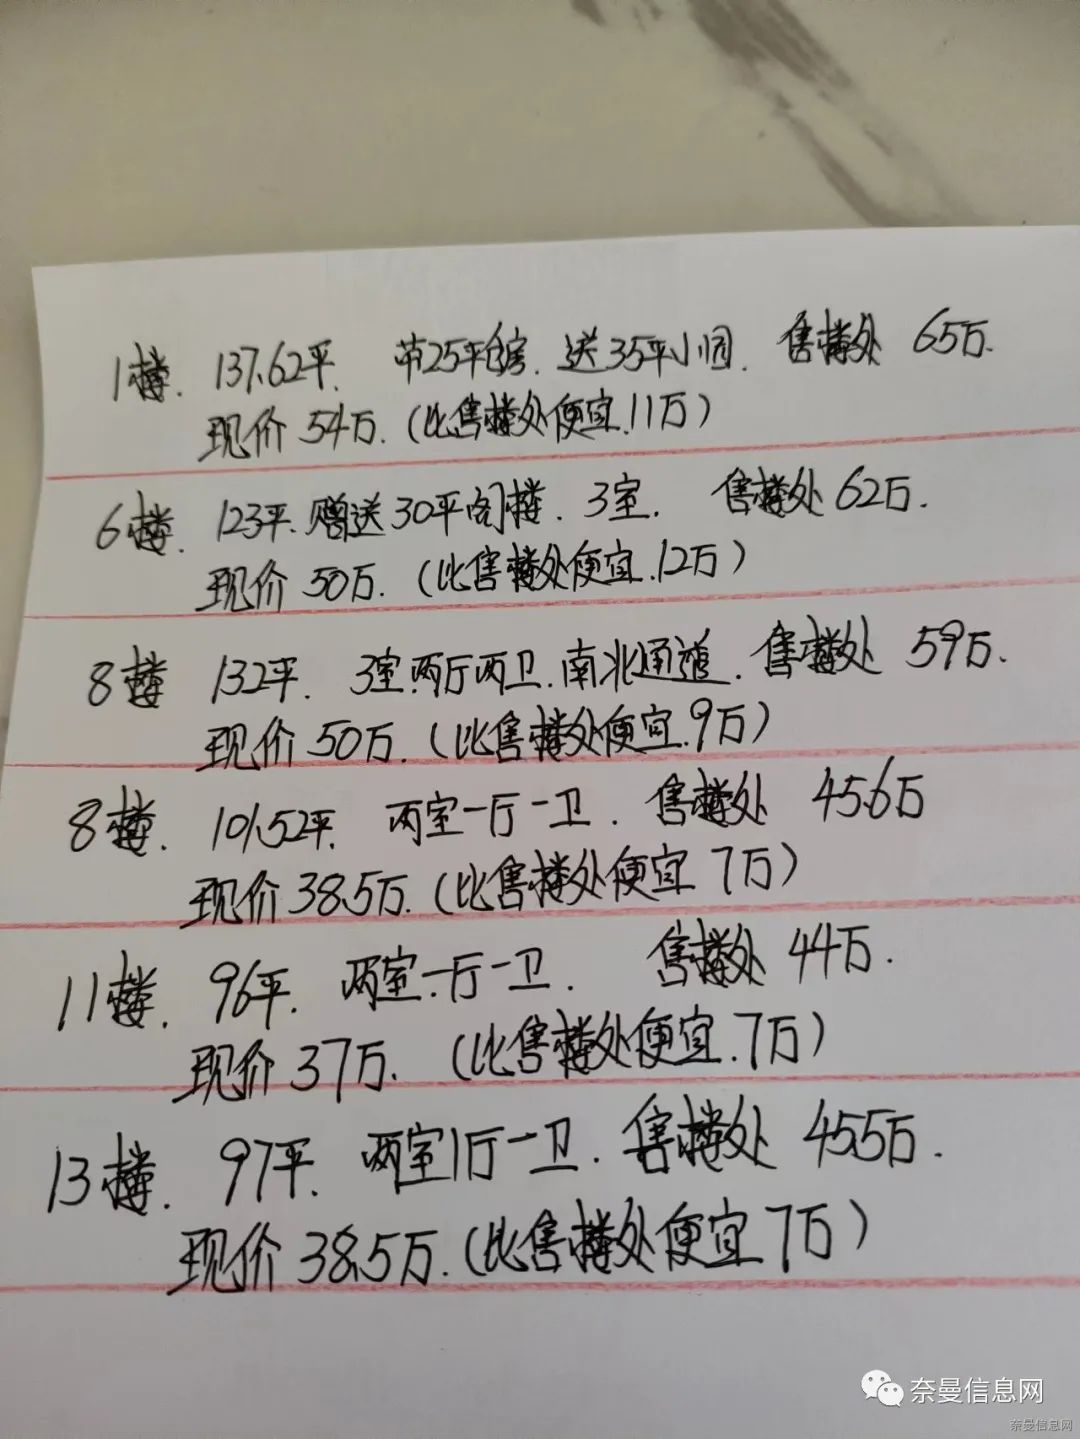 1楼. 137.62平. 带25平仓房. 送35平小园. 售楼处 65万.
现价 54万. (比售楼处便宜. 11万)
6楼. 123平. 赠送30平阁楼. 3室. 售楼处 62万.
现价 50万. (比售楼处便宜. 12万)
8楼 132平. 3室.两厅两卫.南北通透. 售楼处 59万.
现价 50万. (比售楼处便宜. 9万)
8楼. 101.52平. 两室一厅一卫. 售楼处 45.6万
现价 38.5万. (比售楼处便宜 7万)
11楼. 96平. 两室.一厅一卫. 售楼处 44万.
现价 37万. (比售楼处便宜. 7万)
13楼. 97平. 两室1厅一卫. 售楼处 45.5万.
现价 38.5万. (比售楼处便宜 7万)
奈曼信息网
奈曼信息网